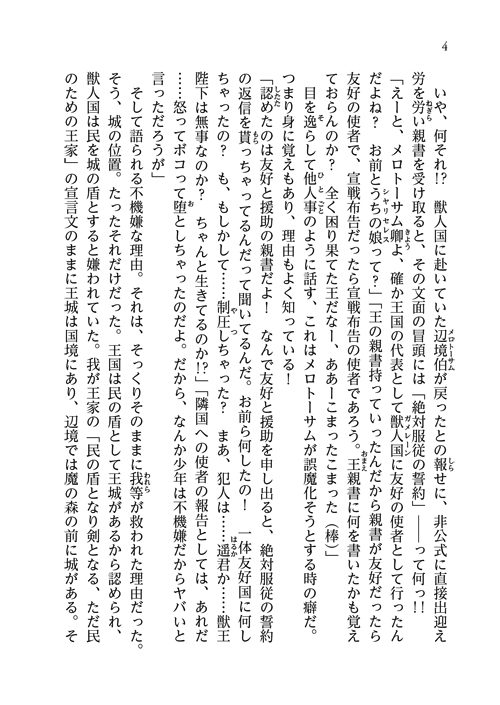 4
いや、何それ!?　獣人国に赴いていた辺境伯が戻ったとの報せに、非公式に直接出迎え
労を労い親書を受け取ると、その文面の冒頭には「絶対服従の誓約」――って何っ!!
「えーと、メロトーサム卿よ、確か王国の代表として獣人国に友好の使者として行ったん
だよね？　お前とうちの娘って？」「王の親書持っていったんだから親書が友好だったら
友好の使者で、宣戦布告だったら宣戦布告の使者であろう。王親書に何を書いたかも覚え
ておらんのか？　全く困り果てた王だなー、ああーこまったこまった（棒）」
目を逸らして他人事のように話す、これはメロトーサムが誤魔化そうとする時の癖だ。
つまり身に覚えもあり、理由もよく知っている！
「認めたのは友好と援助の親書だよ！　なんで友好と援助を申し出ると、絶対服従の誓約
の返信を貰っちゃってるんだって聞いてるんだ。お前ら何したの！　一体友好国に何し
ちゃったの？　も、もしかして……制圧しちゃった？　まあ、犯人は……遥君か……獣王
陛下は無事なのか？　ちゃんと生きてるのか!?」「隣国への使者の報告としては、あれだ
……怒ってボコって堕としちゃったのだよ。だから、なんか少年は不機嫌だからヤバいと
言っただろうが」
そして語られる不機嫌な理由。それは、そっくりそのままに我等が救われた理由だった。
そう、城の位置。たったそれだけだった。王国は民の盾として王城があるから認められ、
獣人国は民を城の盾とすると嫌われていた。我が王家の「民の盾となり剣となる、ただ民
のための王家」の宣言文のままに王城は国境にあり、辺境では魔の森の前に城がある。そ